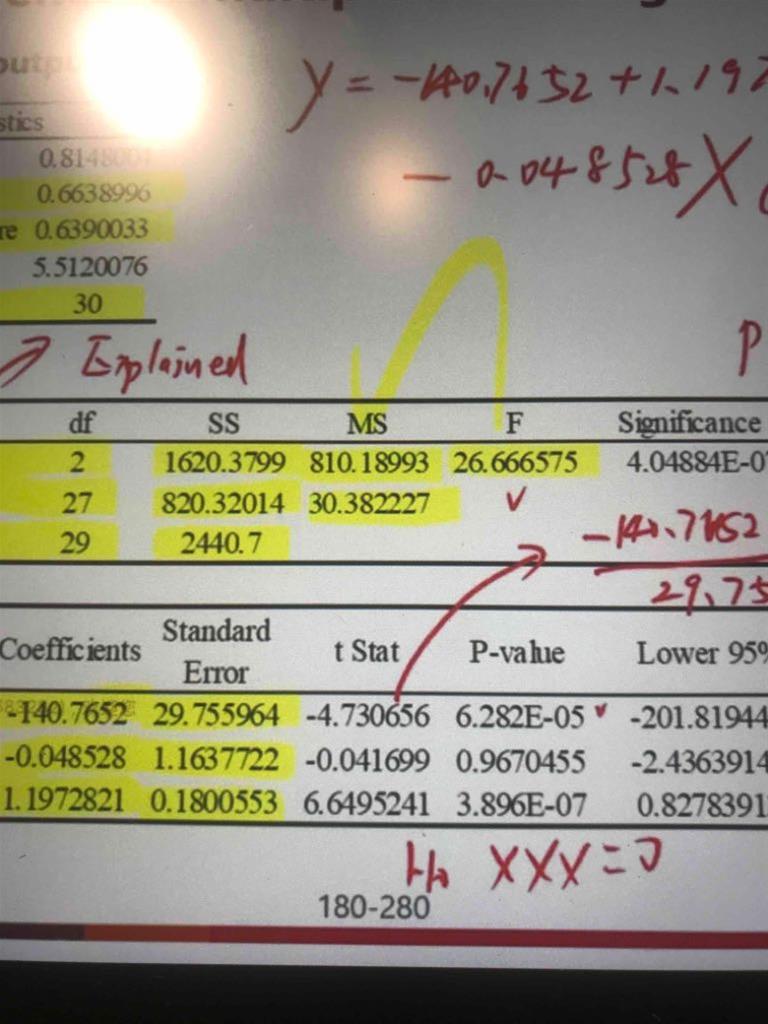 outp
y = -140.7652 + 1.197
- 0.048528 X
stics
0.8148001
0.6638996
re 0.6390033
5.5120076
30
Explained
P
df SS MS F Significance
2 1620.3799 810.18993 26.666575 4.04884E-07
27 820.32014 30.382227
29 2440.7
-140.7652
29.75
Coefficients Standard Error t Stat P-value Lower 95%
-140.7652 29.755964 -4.730656 6.282E-05 -201.81944
-0.048528 1.1637722 -0.041699 0.9670455 -2.4363914
1.1972821 0.1800553 6.6495241 3.896E-07 0.8278391
H₀ XXX = 0
180-280